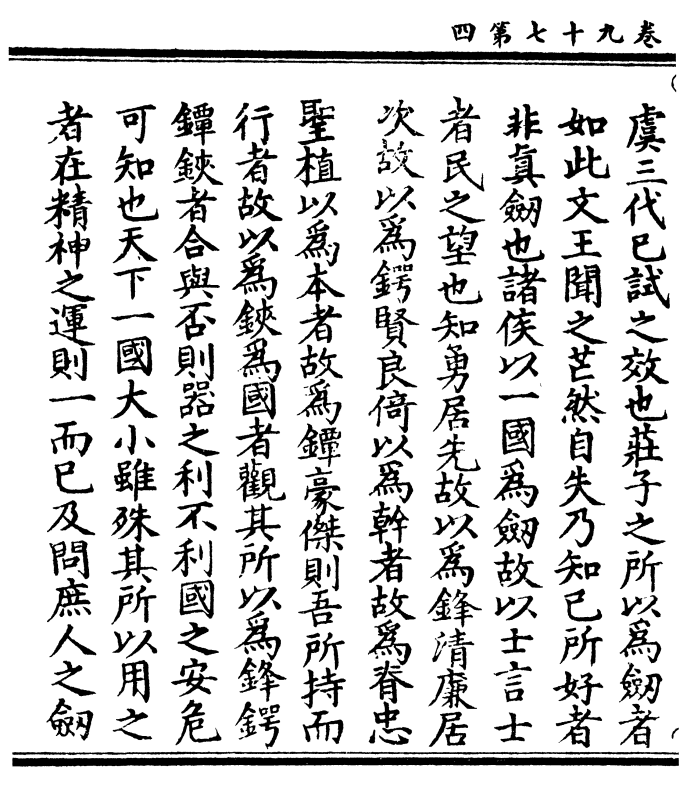 卷九十七第四
虞三代已試之效也莊子之所以為劒者
如此文王聞之芒然自失乃知已所好者
非真劒也諸侯以一國為劒故以士言士
者民之望也知勇居先故以為鋒清廉居
次故以為鍔賢良倚以為幹者故為脊忠
聖植以為本者故為鐔豪傑則吾所持而
行者故以為鋏為國者觀其所以為鋒鍔
鐔鋏者合與否則器之利不利國之安危
可知也天下一國大小雖殊其所以用之
者在精神之運則一而已及問庶人之劒